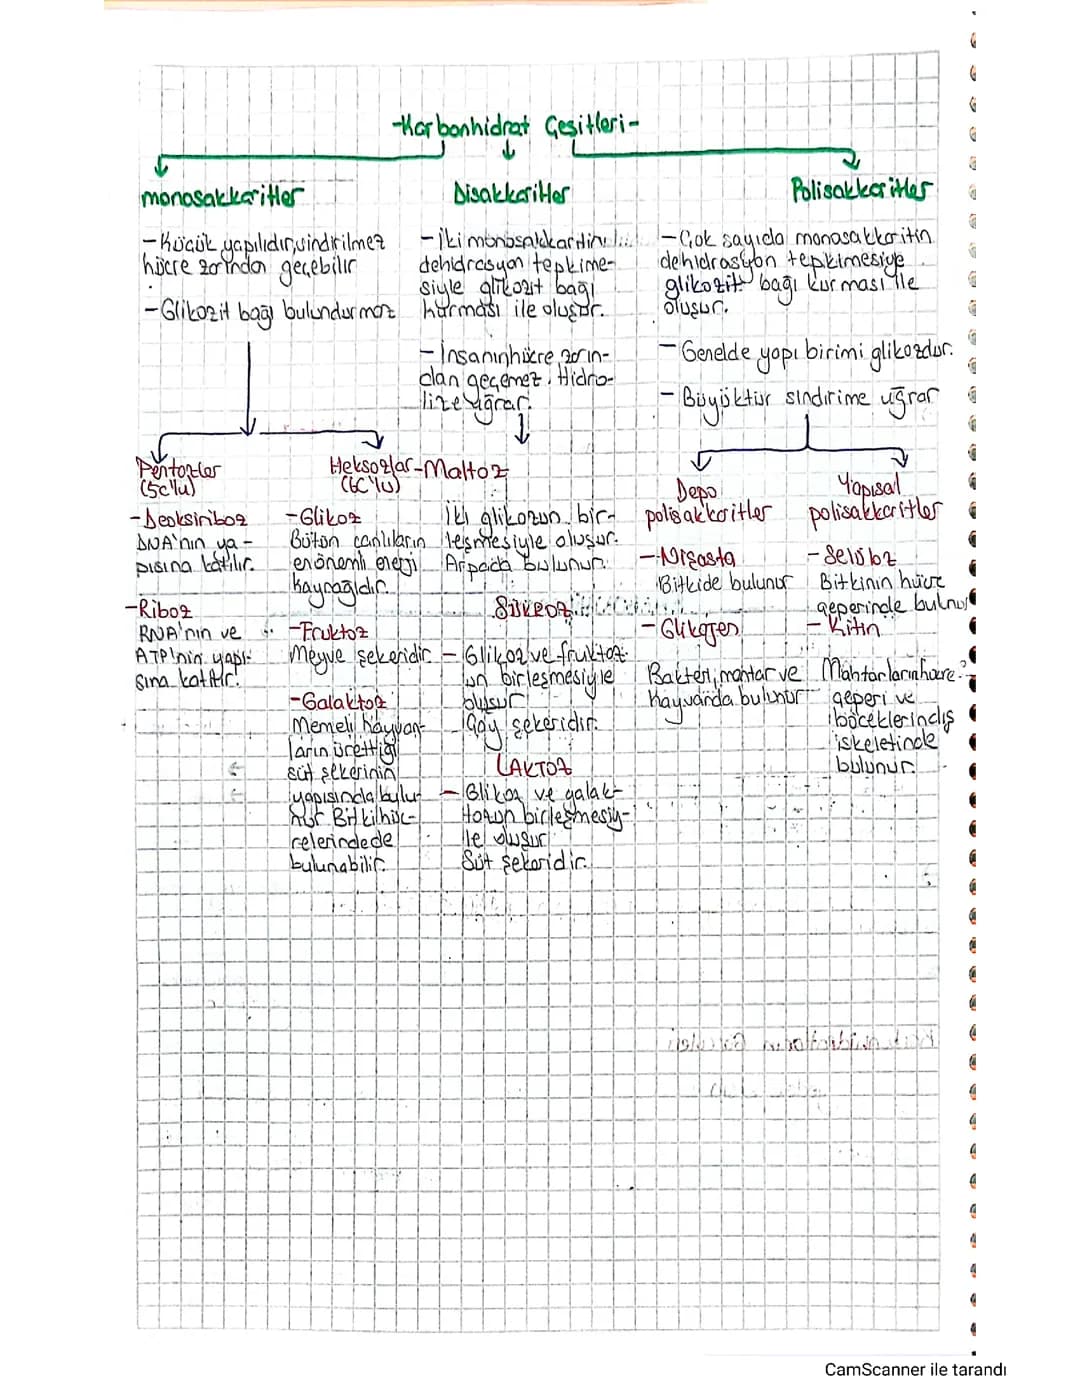 -Karbonhidrat Çeşitleri-
monosakkaritler
-Küçük yapılıdır, sindirilmez
hücre zarından geçebilir
-Glikozit bağı bulundurmaz
Pentozlar
(5c'lu)
-Deoksiriboz
DNA'nın ya-
pısına katılır.
-Riboz
RNA'nın ve
ATP'nin yapı-
sına katılır.
Heksozlar
(6C'lu)
-Glikoz
Bütün canlıların
enönemli enerji
kaynağıdır.
-Fruktoz
Meyve şekeridir
-Galaktoz
Memeli hayvan-
ların ürettiği
süt şekerinin
yapısında bulu-
nur Bitkilhüc-
relerindede
bulunabilir.
Disakkaritler
-İki monosakkaritin
dehidrasyon tepkime-
siyle glikozit bağı
kurması ile oluşur.
-İnsanınhücre zarın-
dan geçemez. Hidro-
lize uğrar.
-Maltoz
İki glikozun bir-
leşmesiyle oluşur.
Arpada bulunur.
SÜKROZ
- Glikoz ve fruktoz-
un birleşmesiyle
oluşur
Çay şekeridir.
LAKTOZ
- Glikoz ve galak-
tozun birleşmesiy-
le oluşur
Süt şekeridir.
Polisakkaritler
-Çok sayıda monosakkaritin
dehidrasyon tepkimesiye
glikozit bağı kurması ile
oluşur.
- Genelde yapı birimi glikozdur.
- Büyüktür sindirime uğrar
Depo
polisakkaritler
-Nişasta
Bitkide bulunur
-Glikojen
Bakteri, mantar ve
hayvanda bulunur
Yapısal
polisakkaritler
-Selüloz
Bitkinin hücre
çeperinde bulunur
-Kitin
Mantarların hücre
çeperi ve
böceklerin dış
iskeletinde
bulunur.
CamScanner ile tarandı